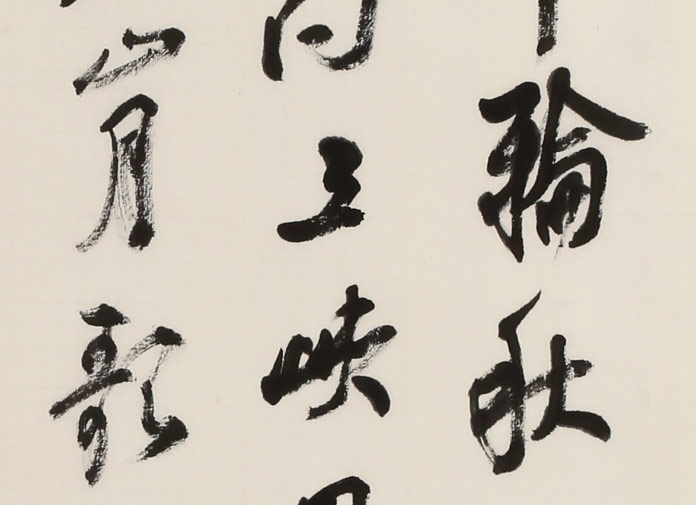 輪秋
向三峽
山月歌